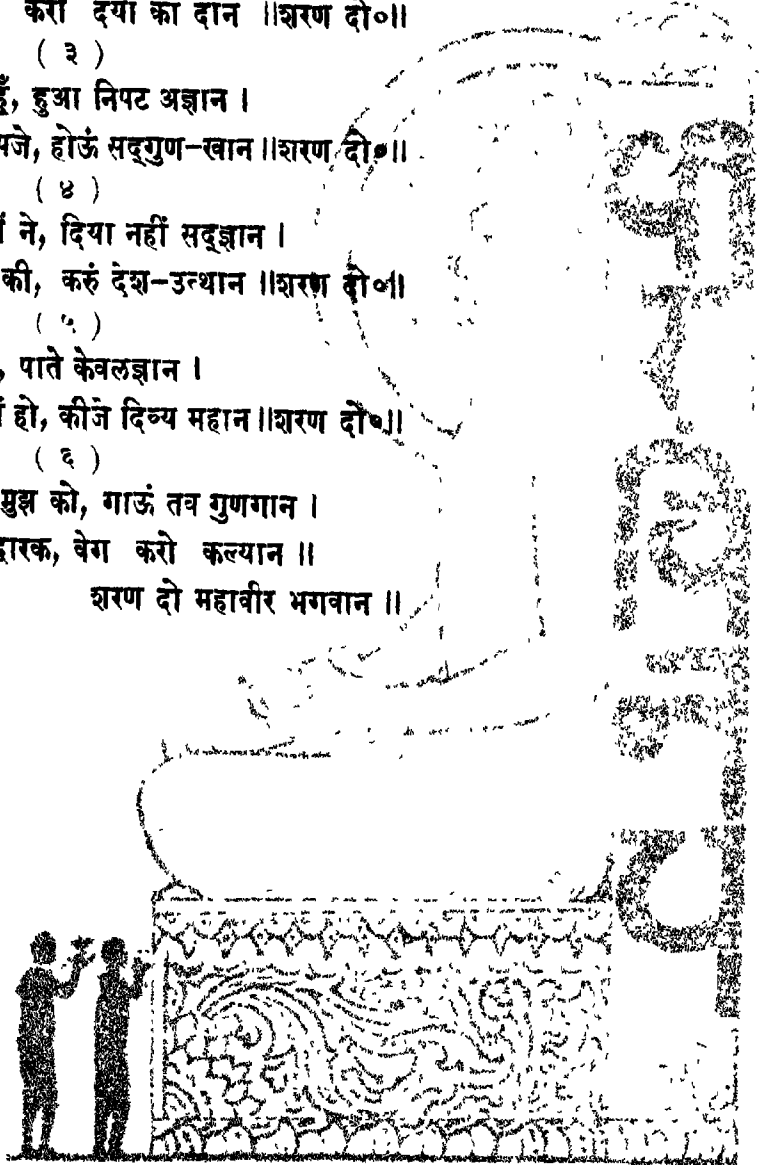 करो दया का दान ॥शरण दो०॥
( ३ )
हूँ, हुआ निपट अज्ञान ।
होऊं सद्‌गुण-खान ॥शरण दो०॥
( ४ )
ने, दिया नहीं सद्ज्ञान ।
की, करुं देश-उत्थान ॥शरण दो०॥
( ५ )
, पाते केवलज्ञान ।
हो, कीजे दिव्य महान ॥शरण दो०॥
( ६ )
मुझ को, गाऊं तव गुणगान ।
वेग करो कल्यान ॥
शरण दो महावीर भगवान ॥